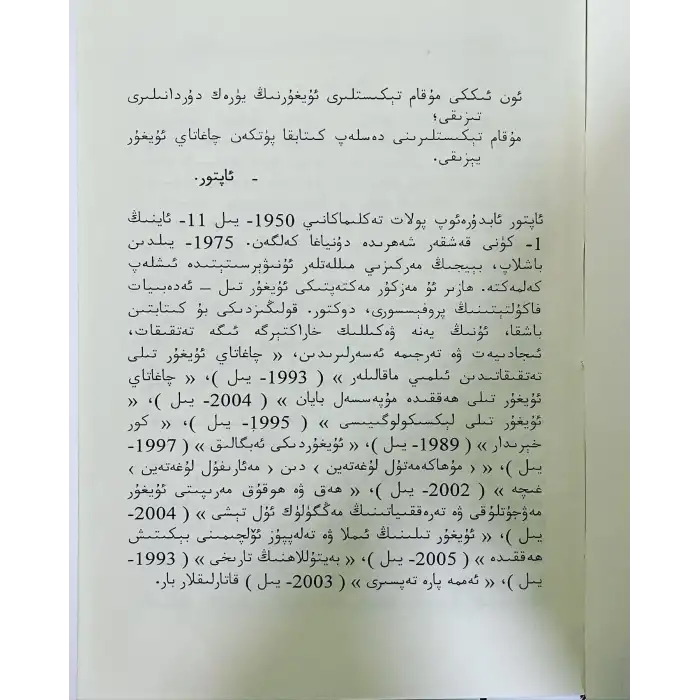 ئون ئىككى مۇقام تېكىستلىرى ئۇيغۇرنىڭ يۈرەك دۇردانىلىرى
تىزىقى؛
مۇقام تېكىستلىرىنى دەسلەپ كىتابقا پۈتكەن چاغاتاي ئۇيغۇر
يېزىقى.
- ئاپتور.
ئاپتور ئابدۇرەئوپ پولات تەكلىماكانىي 1950- يىل 11- ئاينىڭ
1- كۈنى قەشقەر شەھرىدە دۇنياغا كەلگەن. 1975- يىلدىن
باشلاپ، بېيجىڭ مەركىزىي مىللەتلەر ئۇنىۋېرسىتېتىدە ئىشلەپ
كەلمەكتە. ھازىر ئۇ مەزكۇر مەكتەپتىكى ئۇيغۇر تىل — ئەدەبىيات
فاكۇلتېتىنىڭ پروفېسسورى، دوكتور. قولىڭىزدىكى بۇ كىتابتىن
باشقا، ئۇنىڭ يەنە ۋەكىللىك خاراكتېرگە ئىگە تەتقىقات،
ئىجادىيەت ۋە تەرجىمە ئەسەرلىرىدىن، « چاغاتاي ئۇيغۇر تىلى
تەتقىقاتىدىن ئىلمىي ماقالىلەر » ( 1993- يىل )، « چاغاتاي
ئۇيغۇر تىلى ھەققىدە مۇپەسسەل بايان » ( 2004- يىل )، «
ئۇيغۇر تىلى لېكسىكولوگىيىسى » ( 1995- يىل )، « كور
خېرىدار » ( 1989- يىل )، « ئۇيغۇردىكى ئەبگالىق » ( 1997-
يىل )، « ‹ مۇھاكەمەتۇل لۇغەتەين › دىن ‹ مەئارىفۇل لۇغەتەين ›
غىچە » ( 2002- يىل )، « ھەق ۋە ھوقۇق مەرىپىتى ئۇيغۇر
مەۋجۇتلۇقى ۋە تەرەققىياتىنىڭ مەڭگۈلۈك ئۇل تېشى » ( 2004-
يىل )، « ئۇيغۇر تىلىنىڭ ئىملا ۋە تەلەپپۇز ئۆلچىمىنى بېكىتىش
ھەققىدە » ( 2005- يىل )، « بەيتۇللاھنىڭ تارىخى » ( 1993-
يىل )، « ئەممە پارە تەپسىرى » ( 2003- يىل ) قاتارلىقلار بار.